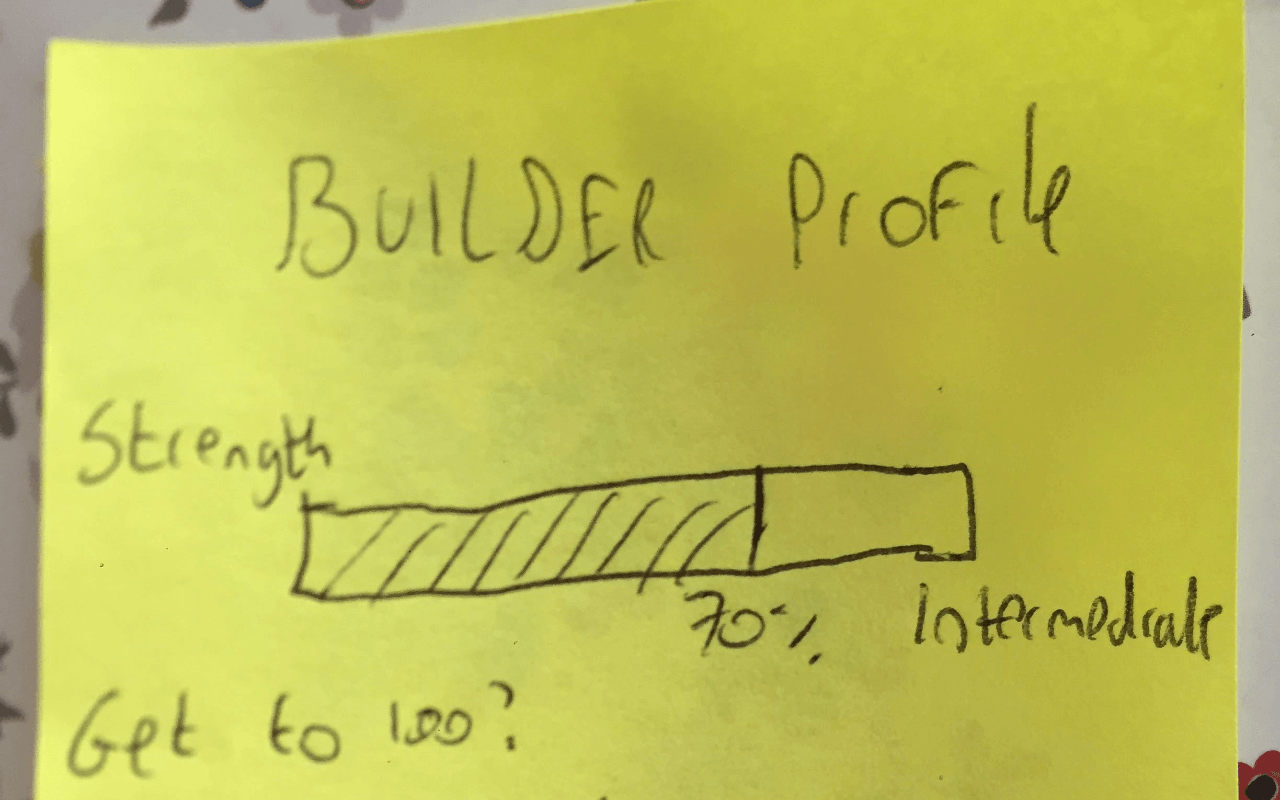 BUILDER Profile
Strength
70%
Intermediate
Get to 100?